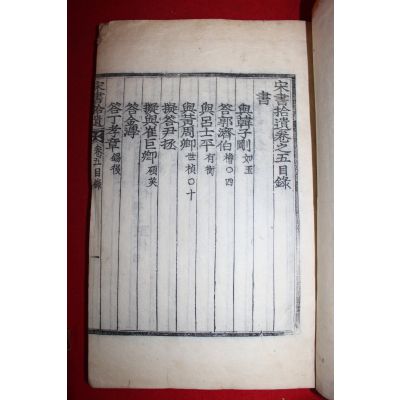 宋書拾遺卷之五目錄
書
與韓子剛 如玉
答郭濟伯 橃○四
與呂士平 有衡
與黃周卿 世楨○十
擬答尹拯
擬與崔巨卿 碩英
答金澤
答丁孝章 錫後
宋書拾遺 卷五目錄 一